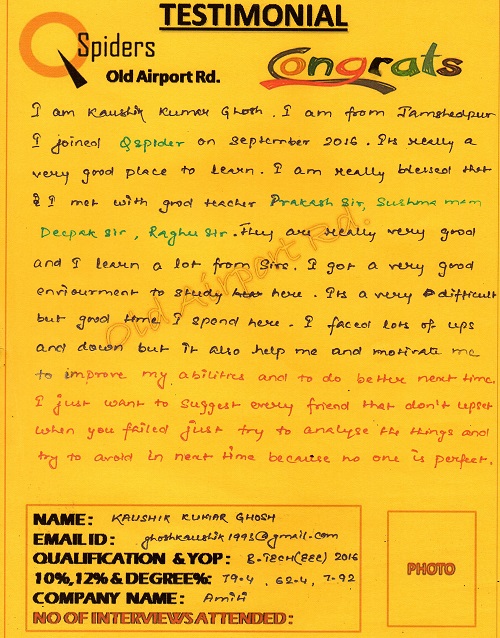 TESTIMONIAL
QSpiders
Old Airport Rd.
Congrats
I am Kaushik Kumar Ghosh. I am from Jamshedpur
I joined Qspider on September 2016. Its really a
very good place to learn. I am really blessed that
I met with good teacher Prakash Sir, Sushma mam
Deepak Sir, Raghu Sir. They are really very good
and I learn a lot from Sirs. I got a very good
enviourment to study here. Its a very difficult
but good time I spend here. I faced lots of ups
and down but it also help me and motivate me
to improve my abilities and to do better next time.
I just want to suggest every friend that don't upset
when you failed just try to analyse the things and
try to avoid in next time because no one is perfect.
Old Airport Rd.
NAME: KAUSHIK KUMAR GHOSH
EMAIL ID: ghoshkaushik1993@gmail.com
QUALIFICATION & YOP: B-TECH(EEE) 2016
10%,12% & DEGREE%: 79.4, 62.4, 7.92
COMPANY NAME: Amiti
NO OF INTERVIEWS ATTENDED:
PHOTO